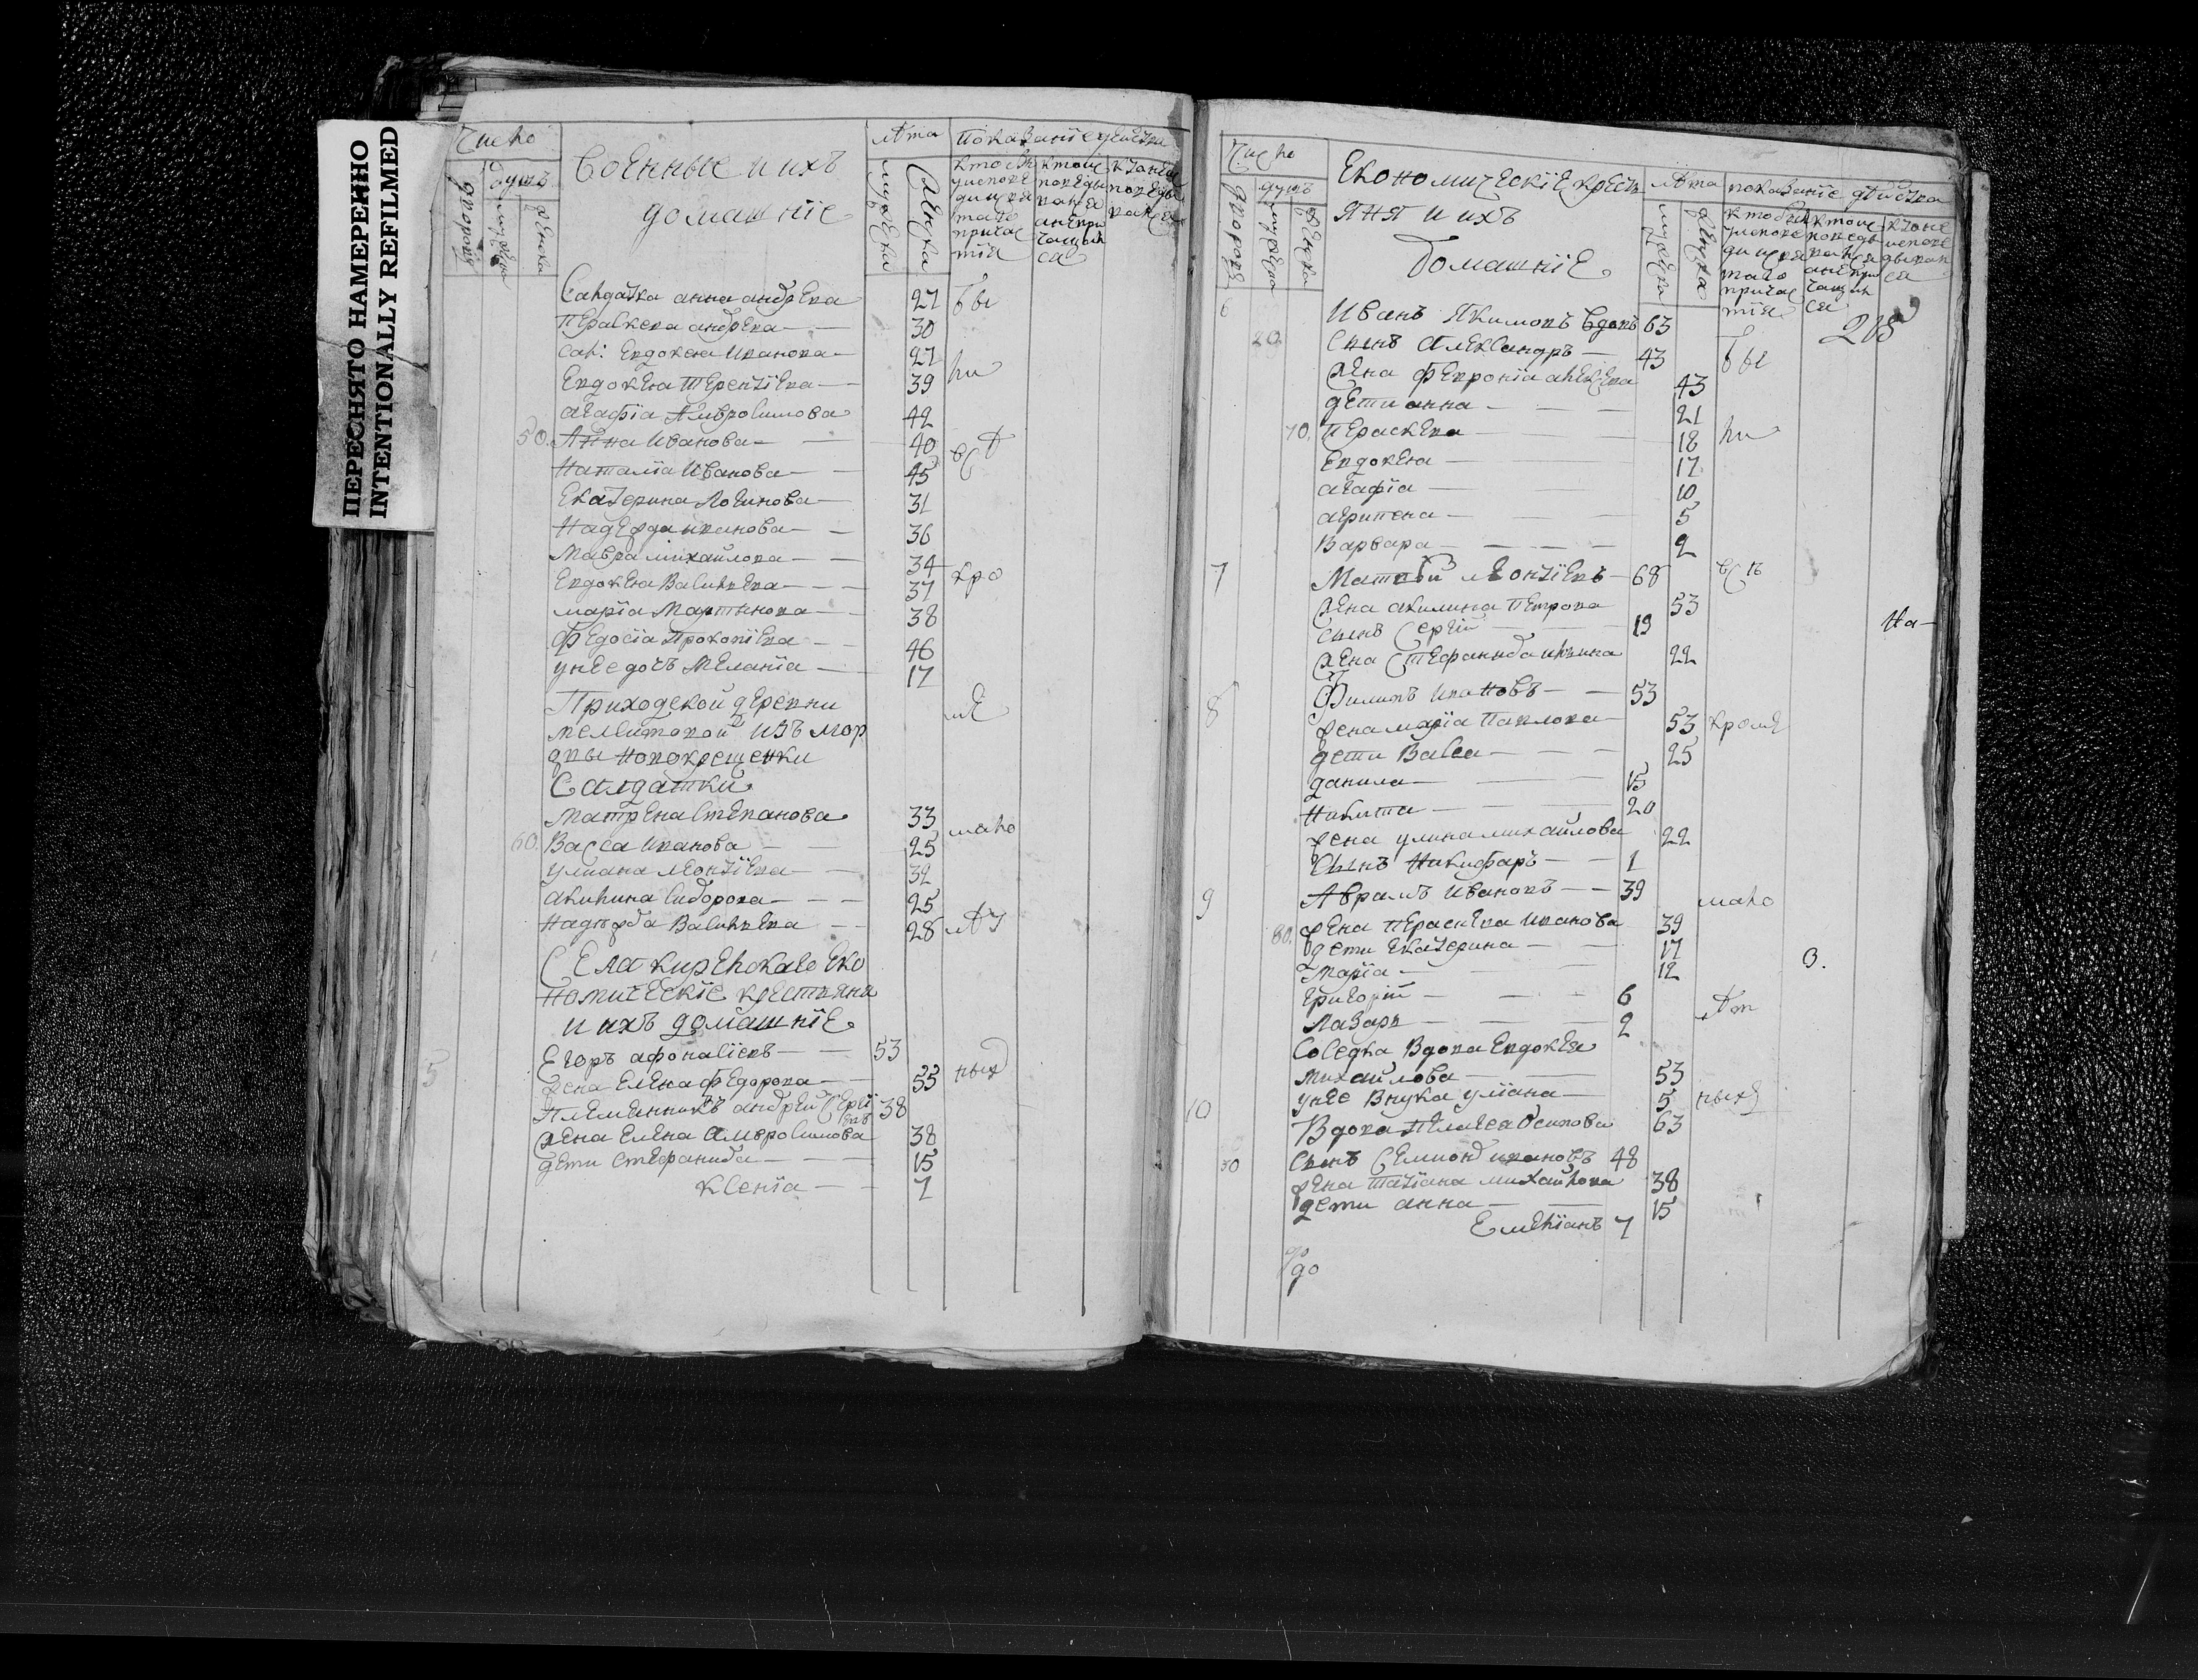 ПЕРЕСНЯТО НАМЕРЕННО
INTENTIONALLY REFILMED
Число
дворовъ
душъ
мужеска
женска
Военные и ихъ
домашніе
лѣта
мужеска
женска
Показаніе
Салдатка анна андрева 27 бы
Парасквва андрева 30
сал: Евдокея Иванова 27
ли
Евдокея Терентіева 39
агафіа Амвросимова 42
50. Анна Иванова 40
всѣ
Наталіа Иванова 45
Екатерина Логинова 31
Надежда иванова 36
Мавра михаилова 34
кро
Евдокея Василиева 37
маріа Мартынова 38
Федосіа Прокопіева 46
у нее дочь Меланіа 17
Приходской деревни
мѣ
мелситовой изъ мор
двы новокрещенки
Салдатки
Матрена Степанова 33
мало
60. Васса иванова 25
улиана Леонтіева 32
акилина Сидорова 25
Надежда Василиева 28 лѣт
Села кирелскаго Еко
номическіе крестьяна
и ихъ домашніе
5 Егоръ афонасіевъ 53
ныхъ
жена Елена Федорова 55
Племянникъ андрей Сергі 38
евъ
жена Елена Амвросимова 38
дети Стефанида 15
Ксеніа 7
Число
дворовъ
душъ
мужеска
женска
Економическіе крест
яня и ихъ
домашніе
лѣта
мужеска
женска
показаніе дѣйства
218
6 Иванъ Якимовъ вдовъ 63
Сынъ Александръ 43 бы
жена Февроніа алексева 43
дети анна 21
70. Параскева 18 ли
Евдокея 17
агафіа 10
агрипена 5
Варвара 2
7 Матвѣй Леонтіевъ 68 всѣ
жена акилина Петрова 53
На
сынъ Сергій 19
жена Стефанида ильина 22
8 Филипъ Ивановъ 53
жена маріа Павлова 53 кромѣ
дети Васса 25
данила 15
Никита 20
жена улина михаилова 22
Сынъ Никифоръ 1
9 Аврамъ Ивановъ 39
мало
80. жена Парасквва Иванова 39
дети Екатерина 17
Маріа 12
з.
григорій 6
лѣт
Лазарь 2
Соседка Вдова Евдокея
михаилова 53
у нее Внука улиана 5 ныхъ
10 Вдова Пелагея Осипова 63
30 сынъ Семионъ ивановъ 48
жена Татіана михаилова 38
дети анна 15
Емеліанъ 7
до